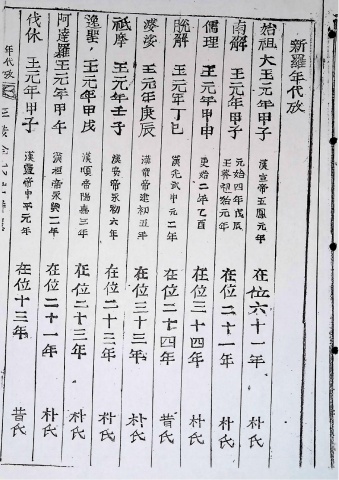 新羅年代攷
始祖大王元年甲子 漢宣帝五鳳元年 在位六十一年 朴氏
南解 王元年甲子 元始四年戊辰 王莽初始元年 在位二十一年 朴氏
儒理 王元年甲申 更始二年乙酉 在位三十四年 朴氏
脫解 王元年丁巳 漢光武中元二年 在位二十四年 昔氏
婆娑 王元年庚辰 漢章帝建初五年 在位三十三年 朴氏
祇摩 王元年壬子 漢安帝永初六年 在位二十三年 朴氏
逸聖 王元年甲戌 漢順帝陽嘉三年 在位二十三年 朴氏
阿達羅王元年甲午 漢桓帝永興二年 在位二十一年 朴氏
伐休 王元年甲子 漢靈帝中平元年 在位十三年 昔氏
年代攷